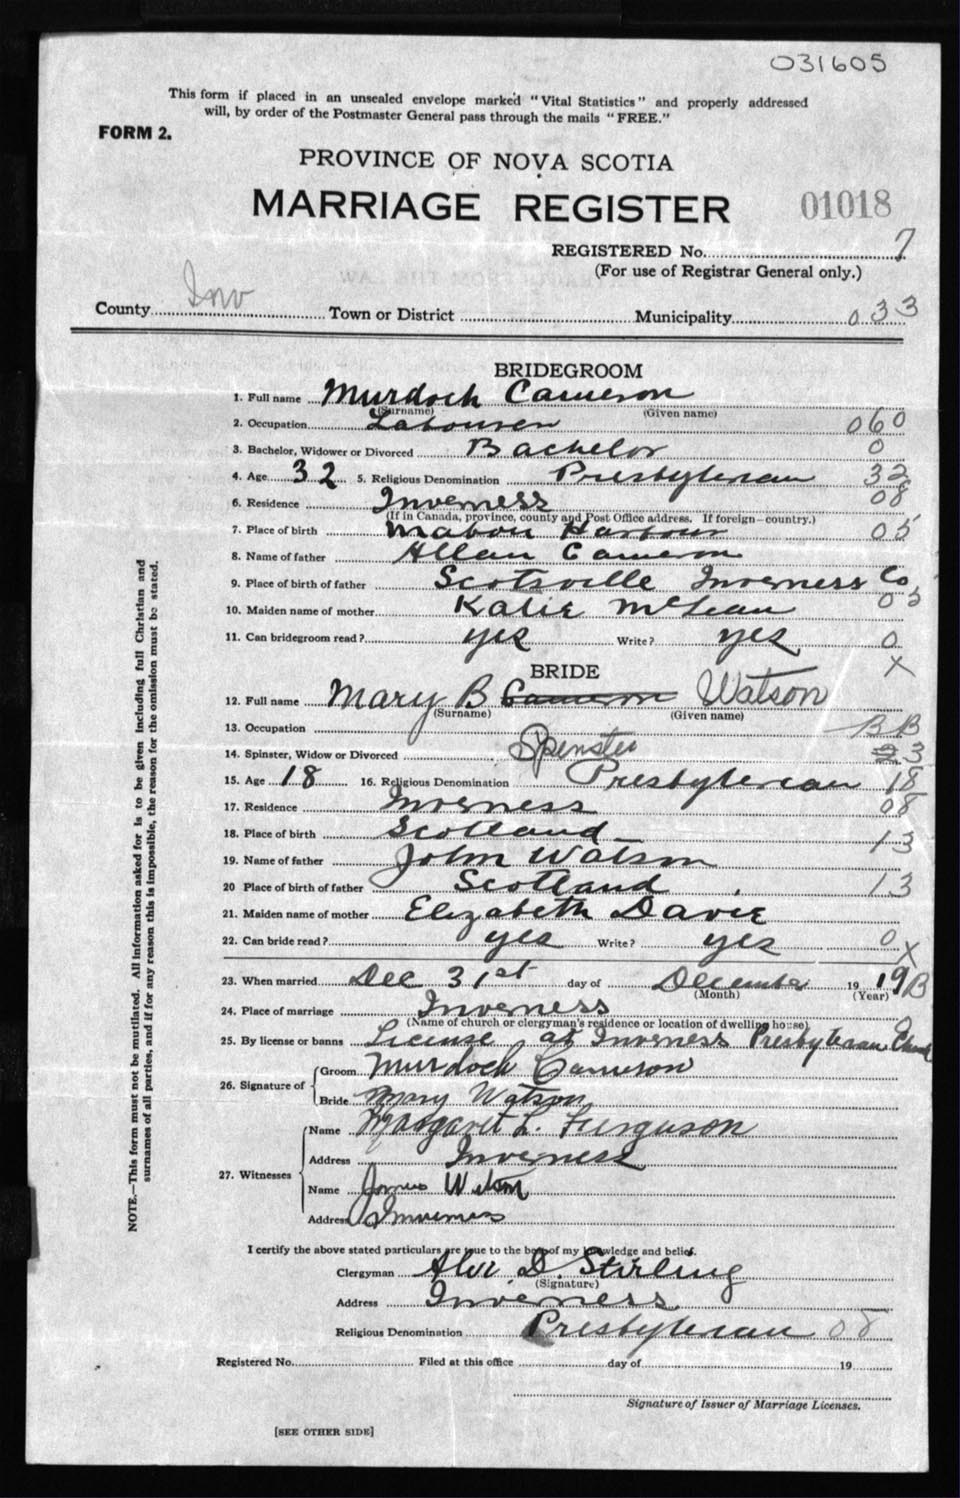 031605
This form if placed in an unsealed envelope marked "Vital Statistics" and properly addressed
will, by order of the Postmaster General pass through the mails "FREE."
FORM 2.
PROVINCE OF NOVA SCOTIA
MARRIAGE REGISTER 01018
REGISTERED No. 7
(For use of Registrar General only.)
County Inv Town or District Municipality 033
BRIDEGROOM
1. Full name Murdoch Cameron
(Surname) (Given name)
2. Occupation Labourer 060
3. Bachelor, Widower or Divorced Bachelor 0
4. Age 32 5. Religious Denomination Presbyterian 32
6. Residence Inverness 08
(If in Canada, province, county and Post Office address. If foreign—country.)
7. Place of birth Mabou Harbour 05
8. Name of father Allan Cameron
9. Place of birth of father Scotsville Inverness Co
10. Maiden name of mother Katie McLean 05
11. Can bridegroom read? yes Write? yes 0
X
BRIDE
12. Full name Mary B Cameron Watson
(Surname) (Given name)
13. Occupation BB
14. Spinster, Widow or Divorced Spinster 3
15. Age 18 16. Religious Denomination Presbyterian 18
17. Residence Inverness 08
18. Place of birth Scotland 13
19. Name of father John Watson
20 Place of birth of father Scotland 13
21. Maiden name of mother Elizabeth Davie
22. Can bride read? yes Write? yes 0 X
23. When married Dec 31st day of December 19 19 B
(Month) (Year)
24. Place of marriage Inverness
(Name of church or clergyman's residence or location of dwelling house)
25. By license or banns License at Inverness Presbyterian Church
26. Signature of Groom Murdoch Cameron
Bride Mary Watson
27. Witnesses Name Margaret L. Ferguson
Address Inverness
Name James Watson
Address Inverness
I certify the above stated particulars are true to the best of my knowledge and belief.
Clergyman Alex. D. Stirling
(Signature)
Address Inverness
Religious Denomination Presbyterian 08
Registered No. Filed at this office day of 19
Signature of Issuer of Marriage Licenses.
[SEE OTHER SIDE]
NOTE.—This form must not be mutilated. All information asked for is to be given including full Christian and
surnames of all parties, and if for any reason this is impossible, the reason for the omission must be stated.